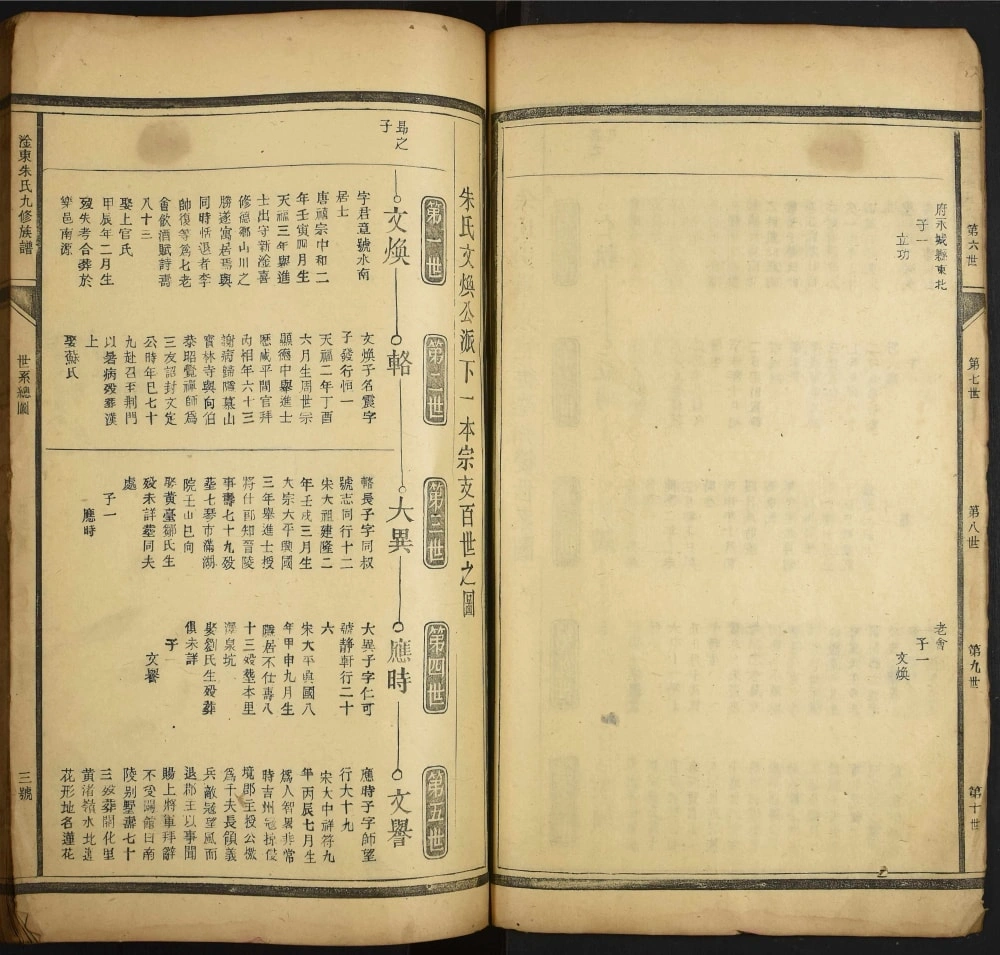 第六世
第七世
第八世
第九世
第十世
府永城縣東北
子一
立功
老會
子一
文煥
朱氏文煥公派下一本宗支百世之圖
第一世
第二世
第三世
第四世
第五世
昜之
子
文煥
字君章號水南
居士
唐禧宗中和二
年壬寅四月生
天福三年舉進
士出守新淦喜
修德鄉山川之
勝遂寓居焉與
同時恬退者李
帥復等為七老
會飲酒賦詩壽
八十三
娶上官氏
甲辰年二月生
歿失考合葬於
樂邑南源
輅
文煥子名震字
子發行恒一
天福二年丁酉
六月生周世宗
顯德中舉進士
歷咸平間官拜
丙相年六十三
謝病歸隱墓山
寶林寺與向伯
恭昭覺禪師為
三友認封文定
公時年巳七十
九赴召至荆門
以暑病歿葬漢
上
娶蘇氏
大異
輅長子字同叔
號志同行十二
宋太祖建隆二
年壬戌三月生
太宗太平興國
三年舉進士授
將仕郎知晉陵
事壽七十九歿
塟七琴市滿湖
院壬山巳向
娶黃臺鄒氏生
歿未詳塟同夫
處
子一
應時
應時
大異子字仁可
號靜軒行二十
六
宋太平興國八
年甲申九月生
隱居不仕壽八
十三歿塟本里
澤泉坑
娶劉氏生歿葬
俱未詳
子一
文譽
文譽
應時子字師望
行大十九
宋大中祥符九
年丙辰七月生
為人智畧非常
時吉州冦掠侵
境郡主授公檄
為千夫長領義
兵敵冦望風而
退郡主以事聞
賜上將軍拜辭
不受歸館日南
陵别墅壽七十
三歿葬開化里
黃渚嶺水北進
花形地名蓮花
淦東朱氏九修族譜
世系總圖
三號